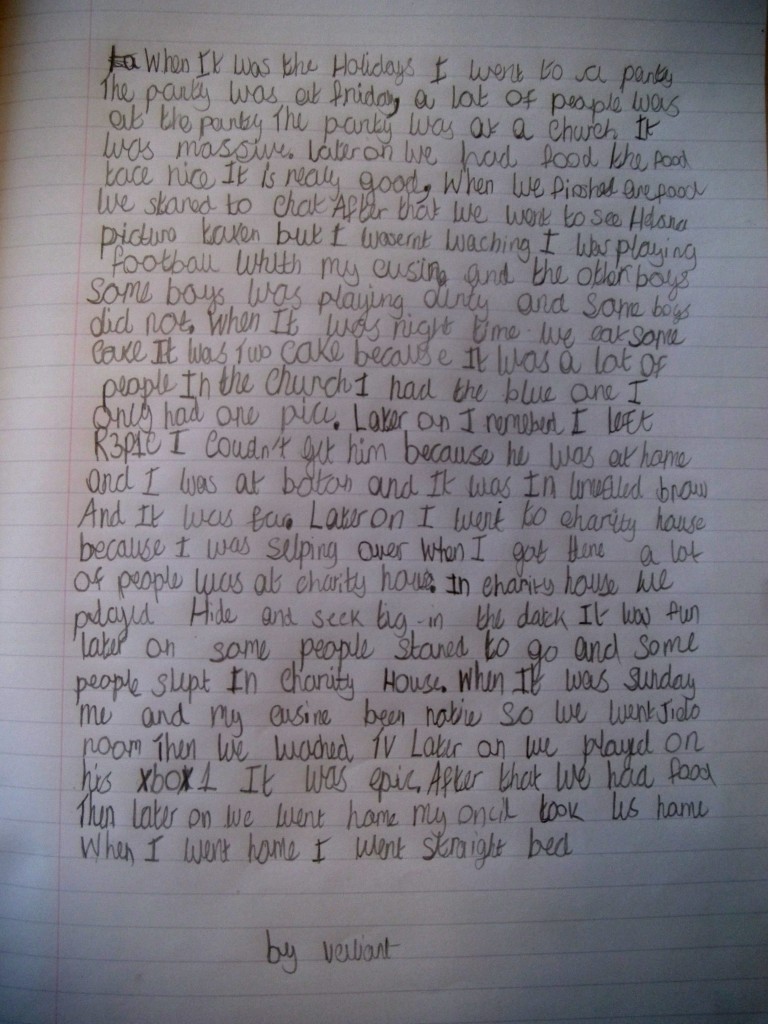 When It was the Holidays I went to a party
The party was at friday, a lot of people was
at the party The party was at a church. It
was massive. Later on we had food the food
tace nice It is realy good. When we finshed are food
we stared to chat After that we went to see
picture taken but I wosernt waching I was playing
football whith my cusing and the other boys
Some boys was playing dirty and some boys
did not. When It was night time we eat some
cake It was Two cake because It was a lot of
people In the church I had the blue one I
Only had one pice. Later on I remeberd I left
I Coudn't get him because he was at home
and I was at bolton and It was In
And It was far. Later on I went to charity house
because I was selping over when I got there a lot
of people was at charity house. In charity house we
played Hide and seek big in the dark It was fun
later on some people stared to go and some
people slept In charity House. When It was Sunday
me and my cusine been notie so we went
room Then we wached TV Later on we played on
his xbox 1 It was epic. After that we had food
Then later on we went home my oncil took us home
When I went home I went straight bed
by